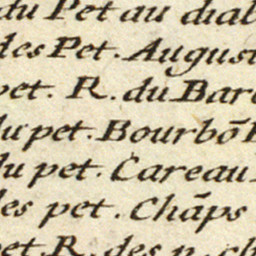 du Pet au dial
des Pet. August
pet. R. du Bar
du pet. Bourbõ
du pet. Careau
les pet. Chãps
et. R. des p. ch